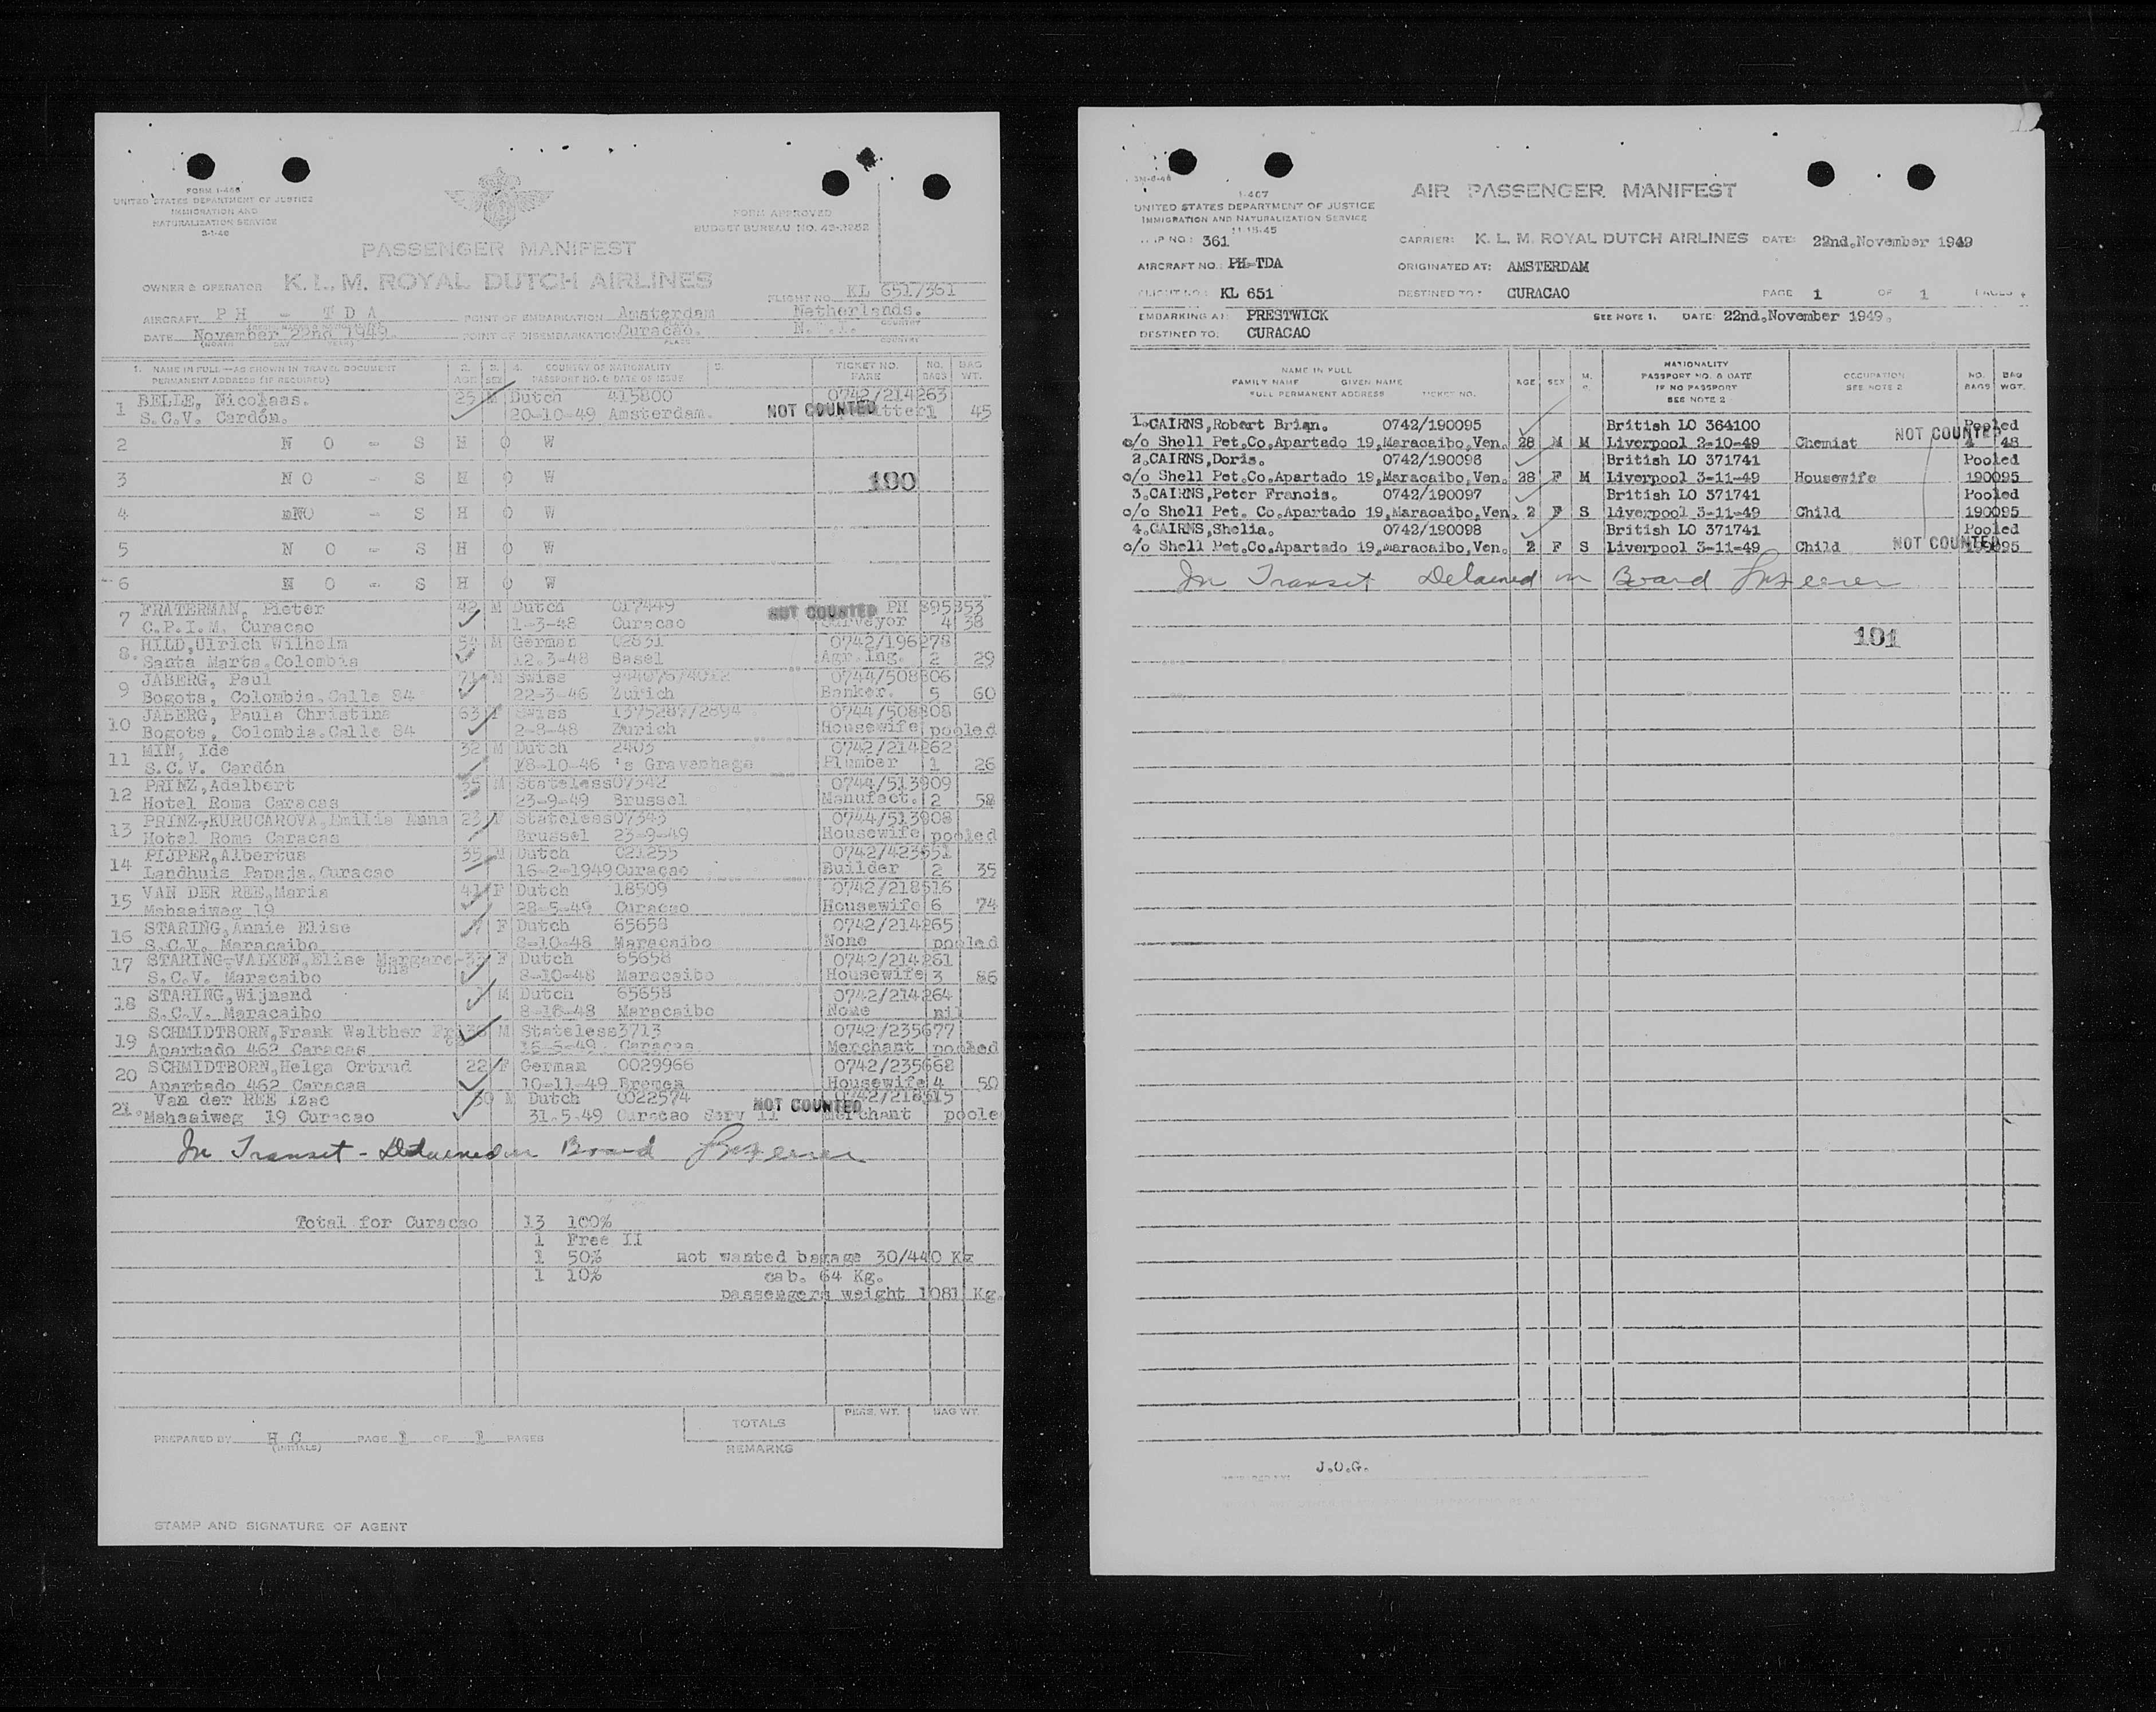 FORM I-466
UNITED STATES DEPARTMENT OF JUSTICE
IMMIGRATION AND
NATURALIZATION SERVICE
FORM APPROVED
BUDGET BUREAU NO. 43-
PASSENGER MANIFEST
OWNER & OPERATOR K. L. M. ROYAL DUTCH AIRLINES
FLIGHT NO. KL 651/361
AIRCRAFT PH - TDA POINT OF EMBARKATION Amsterdam Netherlands.
DATE November 22nd 1949. POINT OF DISEMBARKATION Curacao.
1. NAME IN FULL—AS SHOWN IN TRAVEL DOCUMENT 2. 3. 4. COUNTRY OF NATIONALITY 5. TICKET NO. NO. BAG
PERMANENT ADDRESS (IF REQUIRED) AGE SEX PASSPORT NO. & DATE OF ISSUE FARE BAGS WT.
1 BELLE, Nicolaas. 25 M Dutch 415800 0742/214263
S.C.V. Cardón. 20-10-49 Amsterdam. NOT COUNTED 1 45
2 N O - S H O W
3 N O - S H O W 100
4 NO - S H O W
5 N O - S H O W
6 N O - S H O W
7 FRATERMAN, Pieter 42 M Dutch 017449 NOT COUNTED PH 895353
C.P.I.M. Curacao 1-3-48 Curacao Surveyor 4 38
8. HILD,Ulrich Wilhelm M German 02831 0742/196278
Santa Marta.Colombia 12.3-48 Basel Agr.Ing. 2 29
9 JABERG, Paul M Swiss 0744/508806
Bogota, Colombia.Calle 84 22-3-46 Zurich Banker. 5 60
10 JABERG, Paula Christina 63 F Swiss 1375287/2894 0744/508808
Bogota, Colombia.Calle 84 2-8-48 Zurich Housewife pooled
11 MIN, Ide 32 M Dutch 2403 0742/214262
S.C.V. Cardón 18-10-46 's Gravenhage Plumber 1 26
12 PRINZ,Adalbert 35 M Stateless07342 0744/513909
Hotel Roma Caracas 23-9-49 Brussel Manufact. 2 58
13 PRINZ-KURUCAROVA,Emilie Anna 23 F Stateless07343 0744/513908
Hotel Roma Caracas Brussel 23-9-49 Housewife pooled
14 PIJPER,Albertus 35 M Dutch 021255 0742/423551
Landhuis Papaja.Curacao 16-2-1949 Curaçao Builder 2 35
15 VAN DER REE,Maria 41 F Dutch 18509 0742/218516
Mahaaiweg 19 28-5-49 Curaçao Housewife 6 74
16 STARING,Annie Elise F Dutch 65658 0742/214265
S.C.V. Maracaibo 8-10-48 Maracaibo None pooled
17 STARING-VAIXEN,Elise Margare- F Dutch 65658 0742/214261
S.C.V. Maracaibo tha 8-10-48 Maracaibo Housewife 3 86
18 STARING,Wijnand M Dutch 65658 0742/214264
S.C.V. Maracaibo 8-10-48 Maracaibo None nil
19 SCHMIDTBORN,Frank Walther M Stateless3713 0742/235677
Apartado 462 Caracas 16-5-49. Caracas Merchant pooled
20 SCHMIDTBORN,Helga Ortrud 22 F German 0029966 0742/235668
Apartado 462 Caracas 10-11-49 Bremen Housewife 4 50
21. Van der REE Izac 50 M Dutch 0022574 NOT COUNTED 0742/218515
Mahaaiweg 19 Curacao 31.5.49 Curacao Merchant poole
In Transit - Detained on Board
Total for Curacao 13 100%
1 Free II
1 50% not wanted bagage 30/440 Kg
1 10% cab. 64 Kg.
passengers weight 1081 Kg.
TOTALS PERS. WT. BAG WT.
PREPARED BY H C (INITIALS) PAGE 1 OF 1 PAGES
REMARKS
STAMP AND SIGNATURE OF AGENT
I-407
UNITED STATES DEPARTMENT OF JUSTICE
IMMIGRATION AND NATURALIZATION SERVICE
11-15-45
AIR PASSENGER MANIFEST
NO.: 361 CARRIER: K. L. M. ROYAL DUTCH AIRLINES DATE: 22nd.November 1949
AIRCRAFT NO.: PH-TDA ORIGINATED AT: AMSTERDAM
FLIGHT NO.: KL 651 DESTINED TO: CURACAO PAGE 1 OF 1 PAGES
EMBARKING AT: PRESTWICK SEE NOTE 1. DATE: 22nd.November 1949.
DESTINED TO: CURACAO
NAME IN FULL
FAMILY NAME GIVEN NAME
FULL PERMANENT ADDRESS TICKET NO.
AGE SEX M. S.
NATIONALITY
PASSPORT NO. & DATE
IF NO PASSPORT
SEE NOTE 2
OCCUPATION
SEE NOTE 2
NO. BAGS
BAG WGT.
1.CAIRNS,Robert Brian. 0742/190095 British LO 364100 Pooled
c/o Shell Pet.Co.Apartado 19,Maracaibo,Ven. 28 M M Liverpool 2-10-49 Chemist NOT COUNTED 4 48
2.CAIRNS,Doris. 0742/190096 British LO 371741 Pooled
c/o Shell Pet.Co.Apartado 19,Maracaibo,Ven. 28 F M Liverpool 3-11-49 Housewife 190095
3.CAIRNS,Peter Francis. 0742/190097 British LO 371741 Pooled
c/o Shell Pet. Co.Apartado 19,Maracaibo,Ven. 2 F S Liverpool 3-11-49 Child 190095
4.CAIRNS,Shelia. 0742/190098 British LO 371741 Pooled
c/o Shell Pet.Co.Apartado 19,Maracaibo,Ven. 2 F S Liverpool 3-11-49 Child NOT COUNTED 190095
In Transit Detained on Board
101
J.O.G.